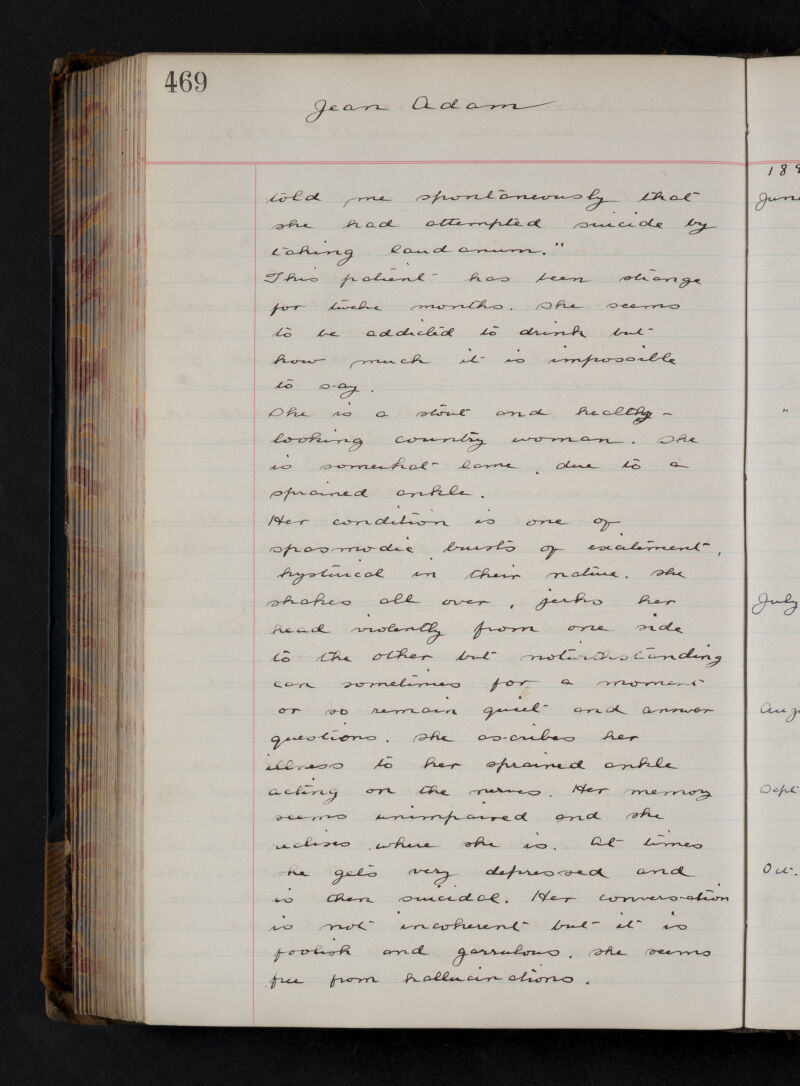 469
Jean Adam
told me spontaneously that
she had attempted suicide by
taking laudanum."
This patient has been strange
for twelve months. She seems
to be addicted to drink but
how much it is impossible
to say.
She is a stout and healthy-
looking country woman. She
is somewhat lame, due to a
sprained ankle.
Her condition is one of
spasmodic bursts of excitement,
hysterical in their nature. She
shakes all over, jerks her
head violently from one side
to the other but notwithstanding
can sometimes for a moment
or so remain quiet and answer
questions. She ascribes her
illness to her sprained ankle
acting on the nerves. Her memory
seems unimpaired and she
realises where she is. At times
she gets very depressed and
is then suicidal. Her conversation
is not incoherent but it is
foolish and garrulous. She seems
free from hallucinations.
189
June
"
July
Aug
Sept
Oct.